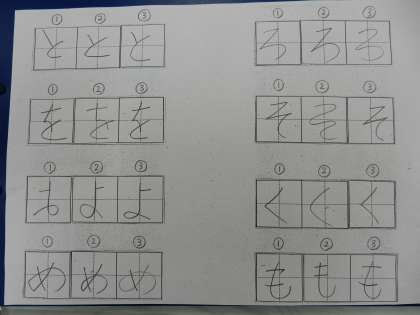 ① ② ③
と と と
① ② ③
を を を
① ② ③
よ よ よ
① ② ③
め め め
① ② ③
ろ ろ る
① ② ③
そ そ そ
① ② ③
く く く
① ② ③
も も も